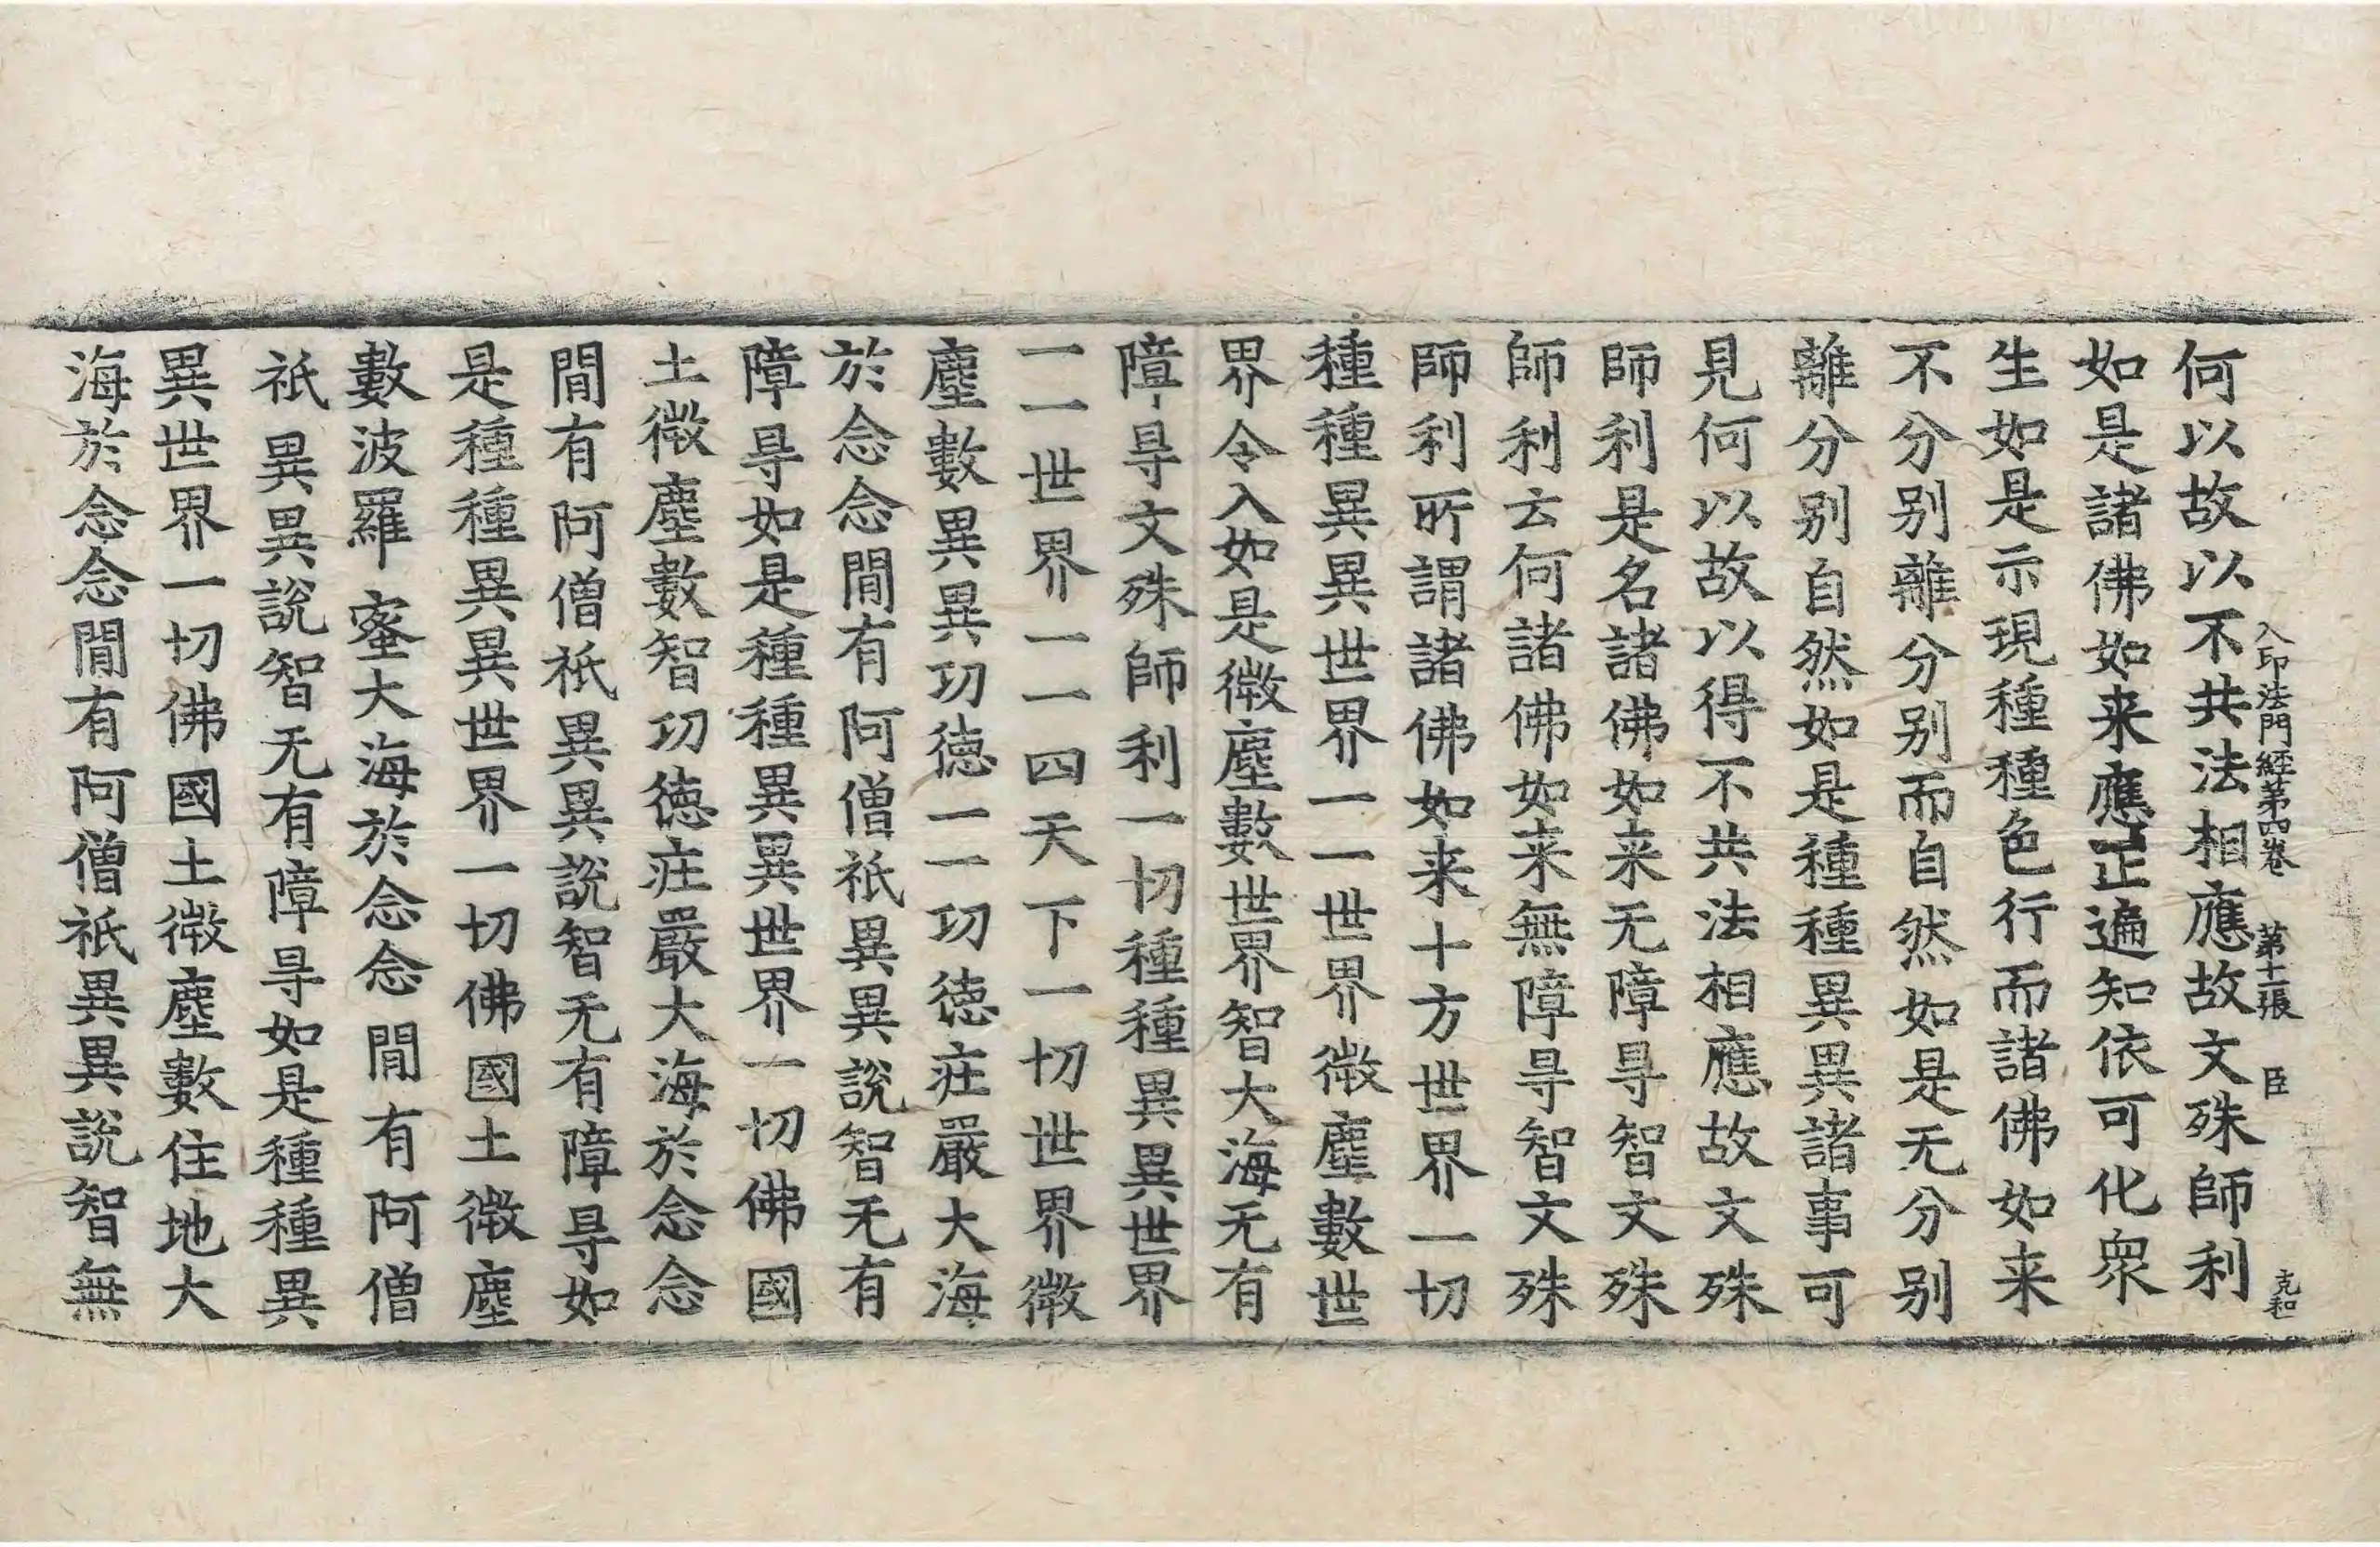 入印法門経第四卷 第十二張 臣 克和
何以故以不共法相應故文殊師利
如是諸佛如来應正遍知依可化衆
生如是示現種種色行而諸佛如来
不分别離分别而自然如是无分别
離分别自然如是種種異異諸事可
見何以故以得不共法相應故文殊
師利是名諸佛如来无障㝵智文殊
師利云何諸佛如来無障㝵智文殊
師利所謂諸佛如来十方世界一切
種種異異世界一一世界微塵數世
界令入如是微塵數世界智大海无有
障㝵文殊師利一切種種異異世界
一一世界一一四天下一切世界微
塵數異異功德一一功德荘嚴大海
於念念閒有阿僧祇異異說智无有
障㝵如是種種異異世界一切佛國
土微塵數智功德荘嚴大海於念念
閒有阿僧祇異異說智无有障㝵如
是種種異異世界一切佛國土微塵
數波羅蜜大海於念念閒有阿僧
祇異異說智无有障㝵如是種種異
異世界一切佛國土微塵數住地大
海於念念閒有阿僧祇異異說智無